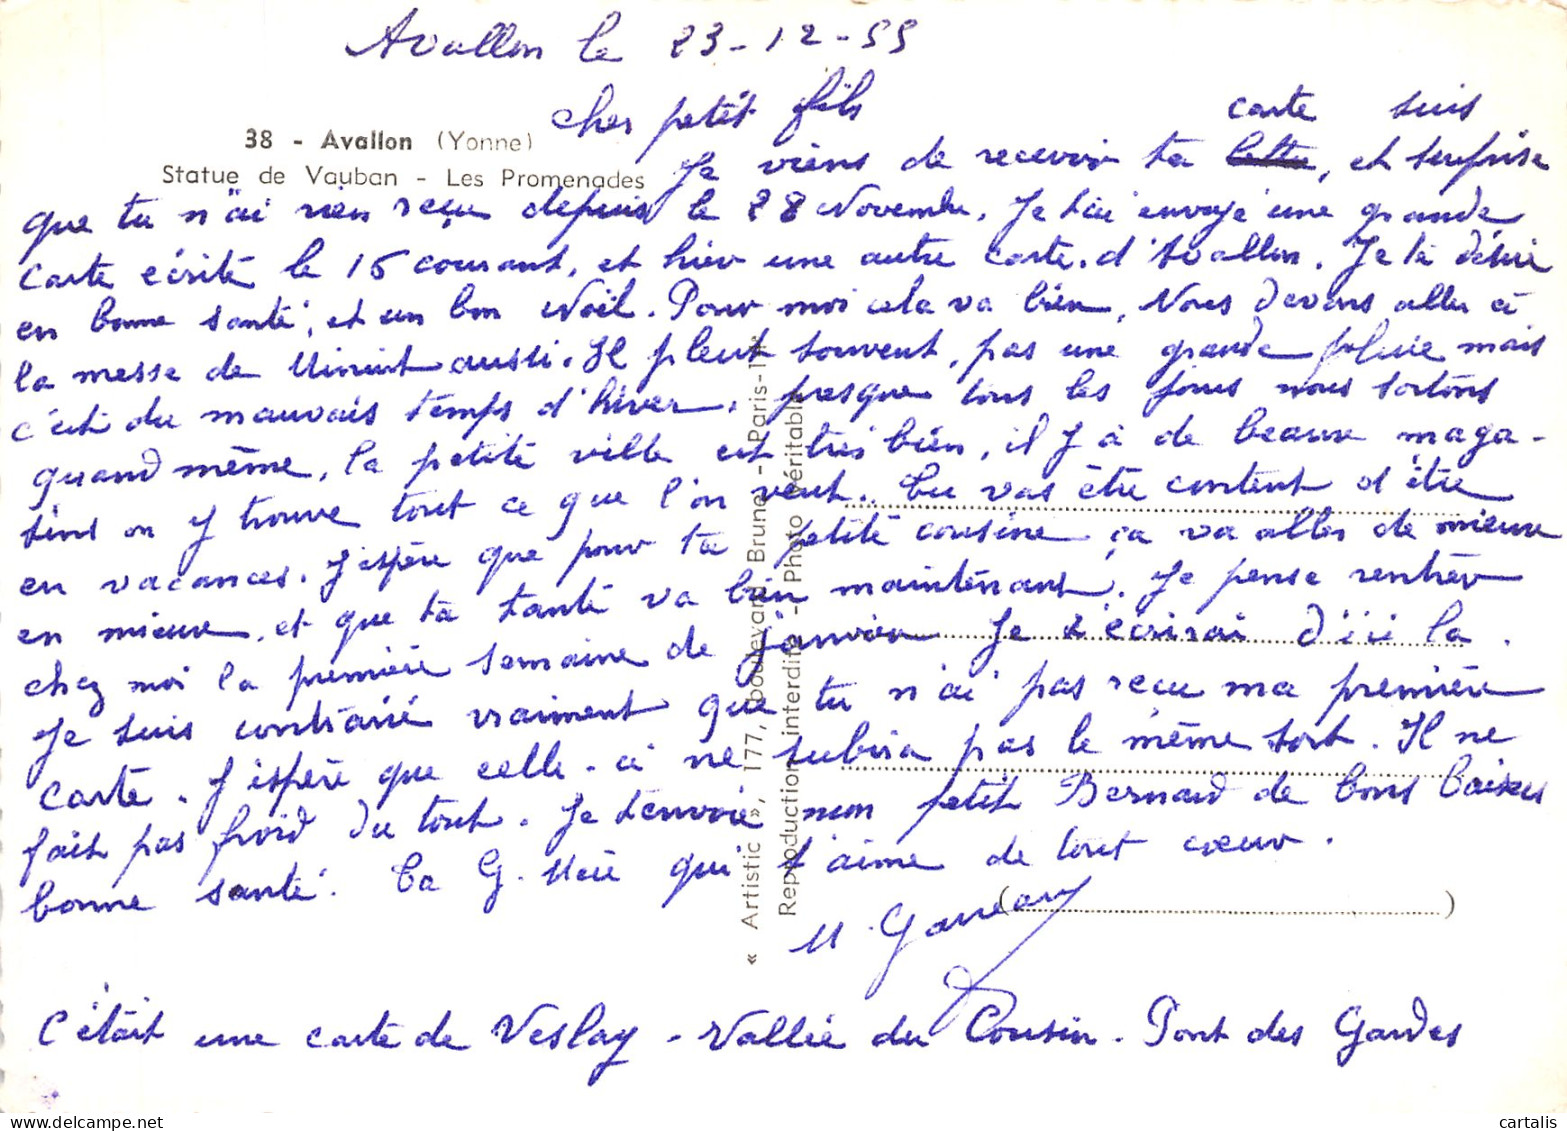 Avallon le 23-12-55
Cher petit fils
38 - Avallon (Yonne)
Statue de Vauban - Les Promenades
carte suis
Je viens de recevoir ta lettre, et surprise
que tu n'ai rien reçu depuis le 28 Novembre. Je t'ai envoyé une grande
carte écrite le 16 courant, et hier une autre carte d'Avallon. Je te désire
en bonne santé, et un bon Noël. Pour moi cela va bien, Nous devons aller à
la messe de Minuit aussi. Il pleut souvent, pas une grande pluie mais
c'est du mauvais temps d'hiver, presque tous les jours nous sortons
quand même, la petite ville est très bien, il y a de beaux maga-
sins on y trouve tout ce que l'on veut. Tu vas être content d'être
en vacances. J'espère que pour ta petite cousine ça va aller de mieux
en mieux, et que ta tante va bien maintenant. Je pense rentrer
chez moi la première semaine de janvier Je t'écrirai d'ici là.
Je suis contrarié vraiment que tu n'ai pas reçu ma première
carte. J'espère que celle-ci ne subira pas le même sort. Il ne
fait pas froid du tout. Je t'envoie mon petit Bernard de bons baisers
bonne santé. Ta G. Mère qui t'aime de tout cœur.
M. Garreau
C'était une carte de Veslay - Vallée du Cousin - Pont des Gardes
« Artistic », 177, boulevard Brune - Paris-14e
Reproduction interdite - Photo véritable
cartalis